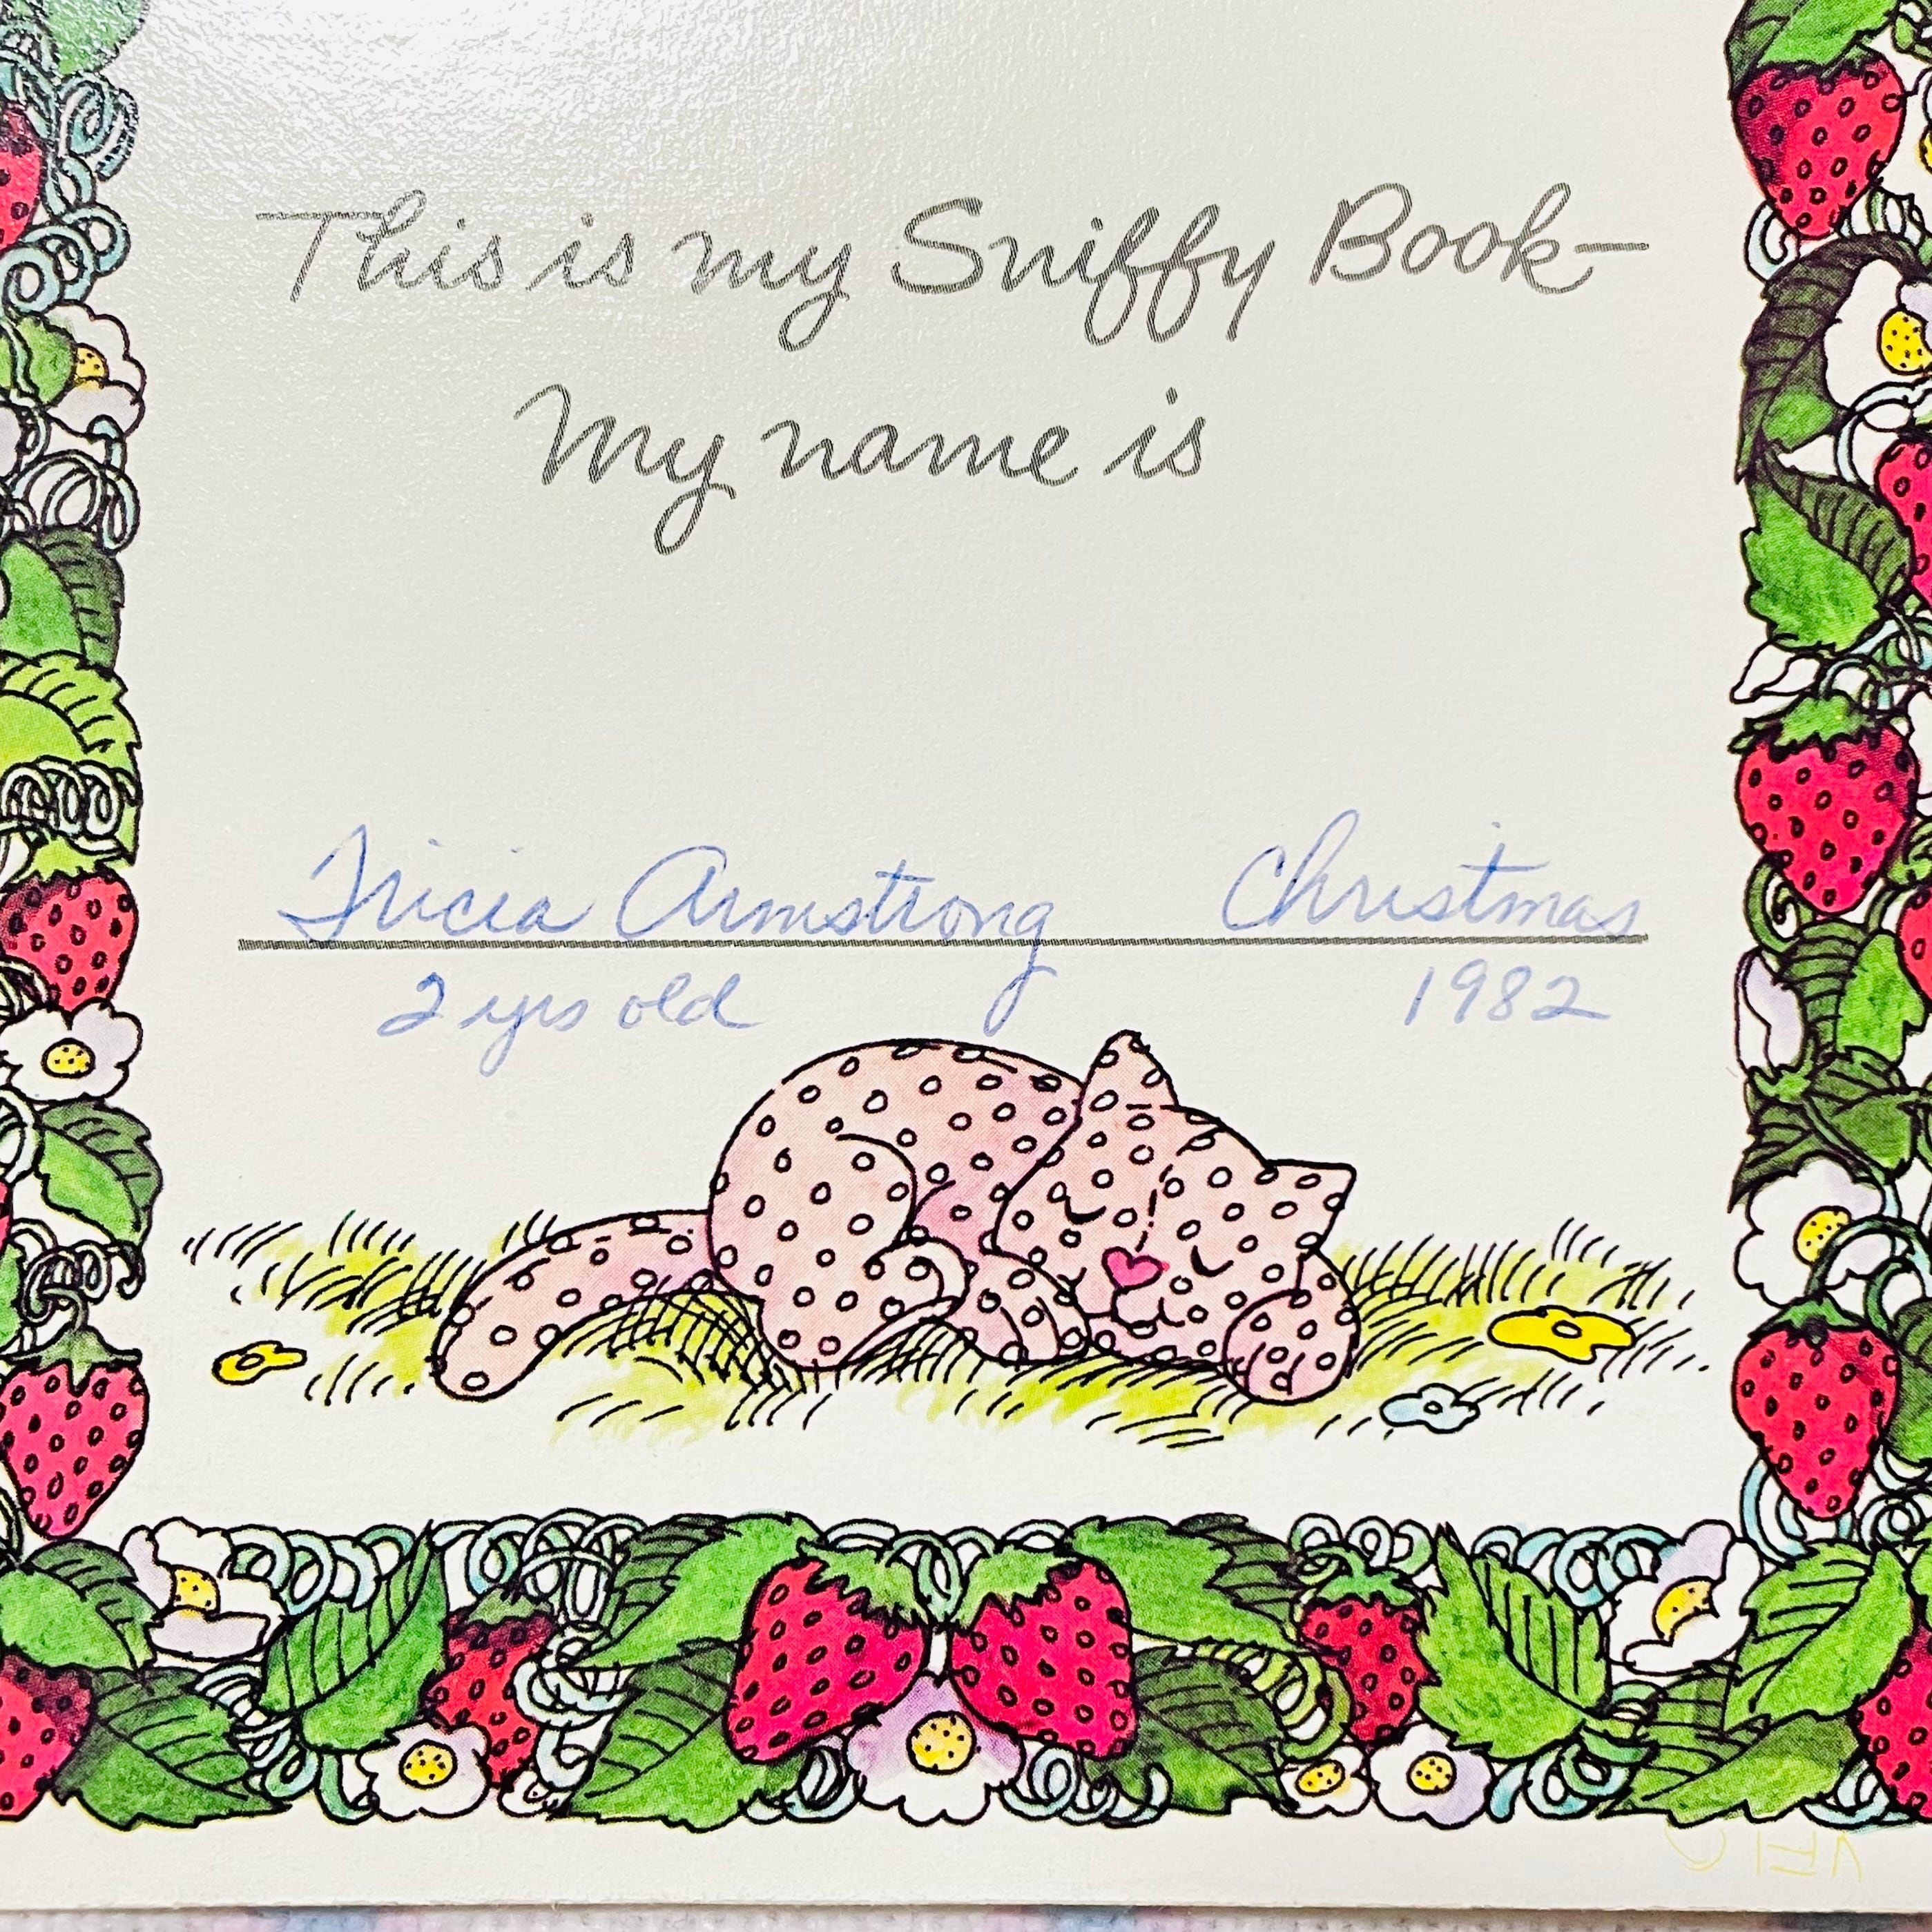 This is my Sniffy Book—
My name is
Tricia Armstrong Christmas
2 yrs old 1982